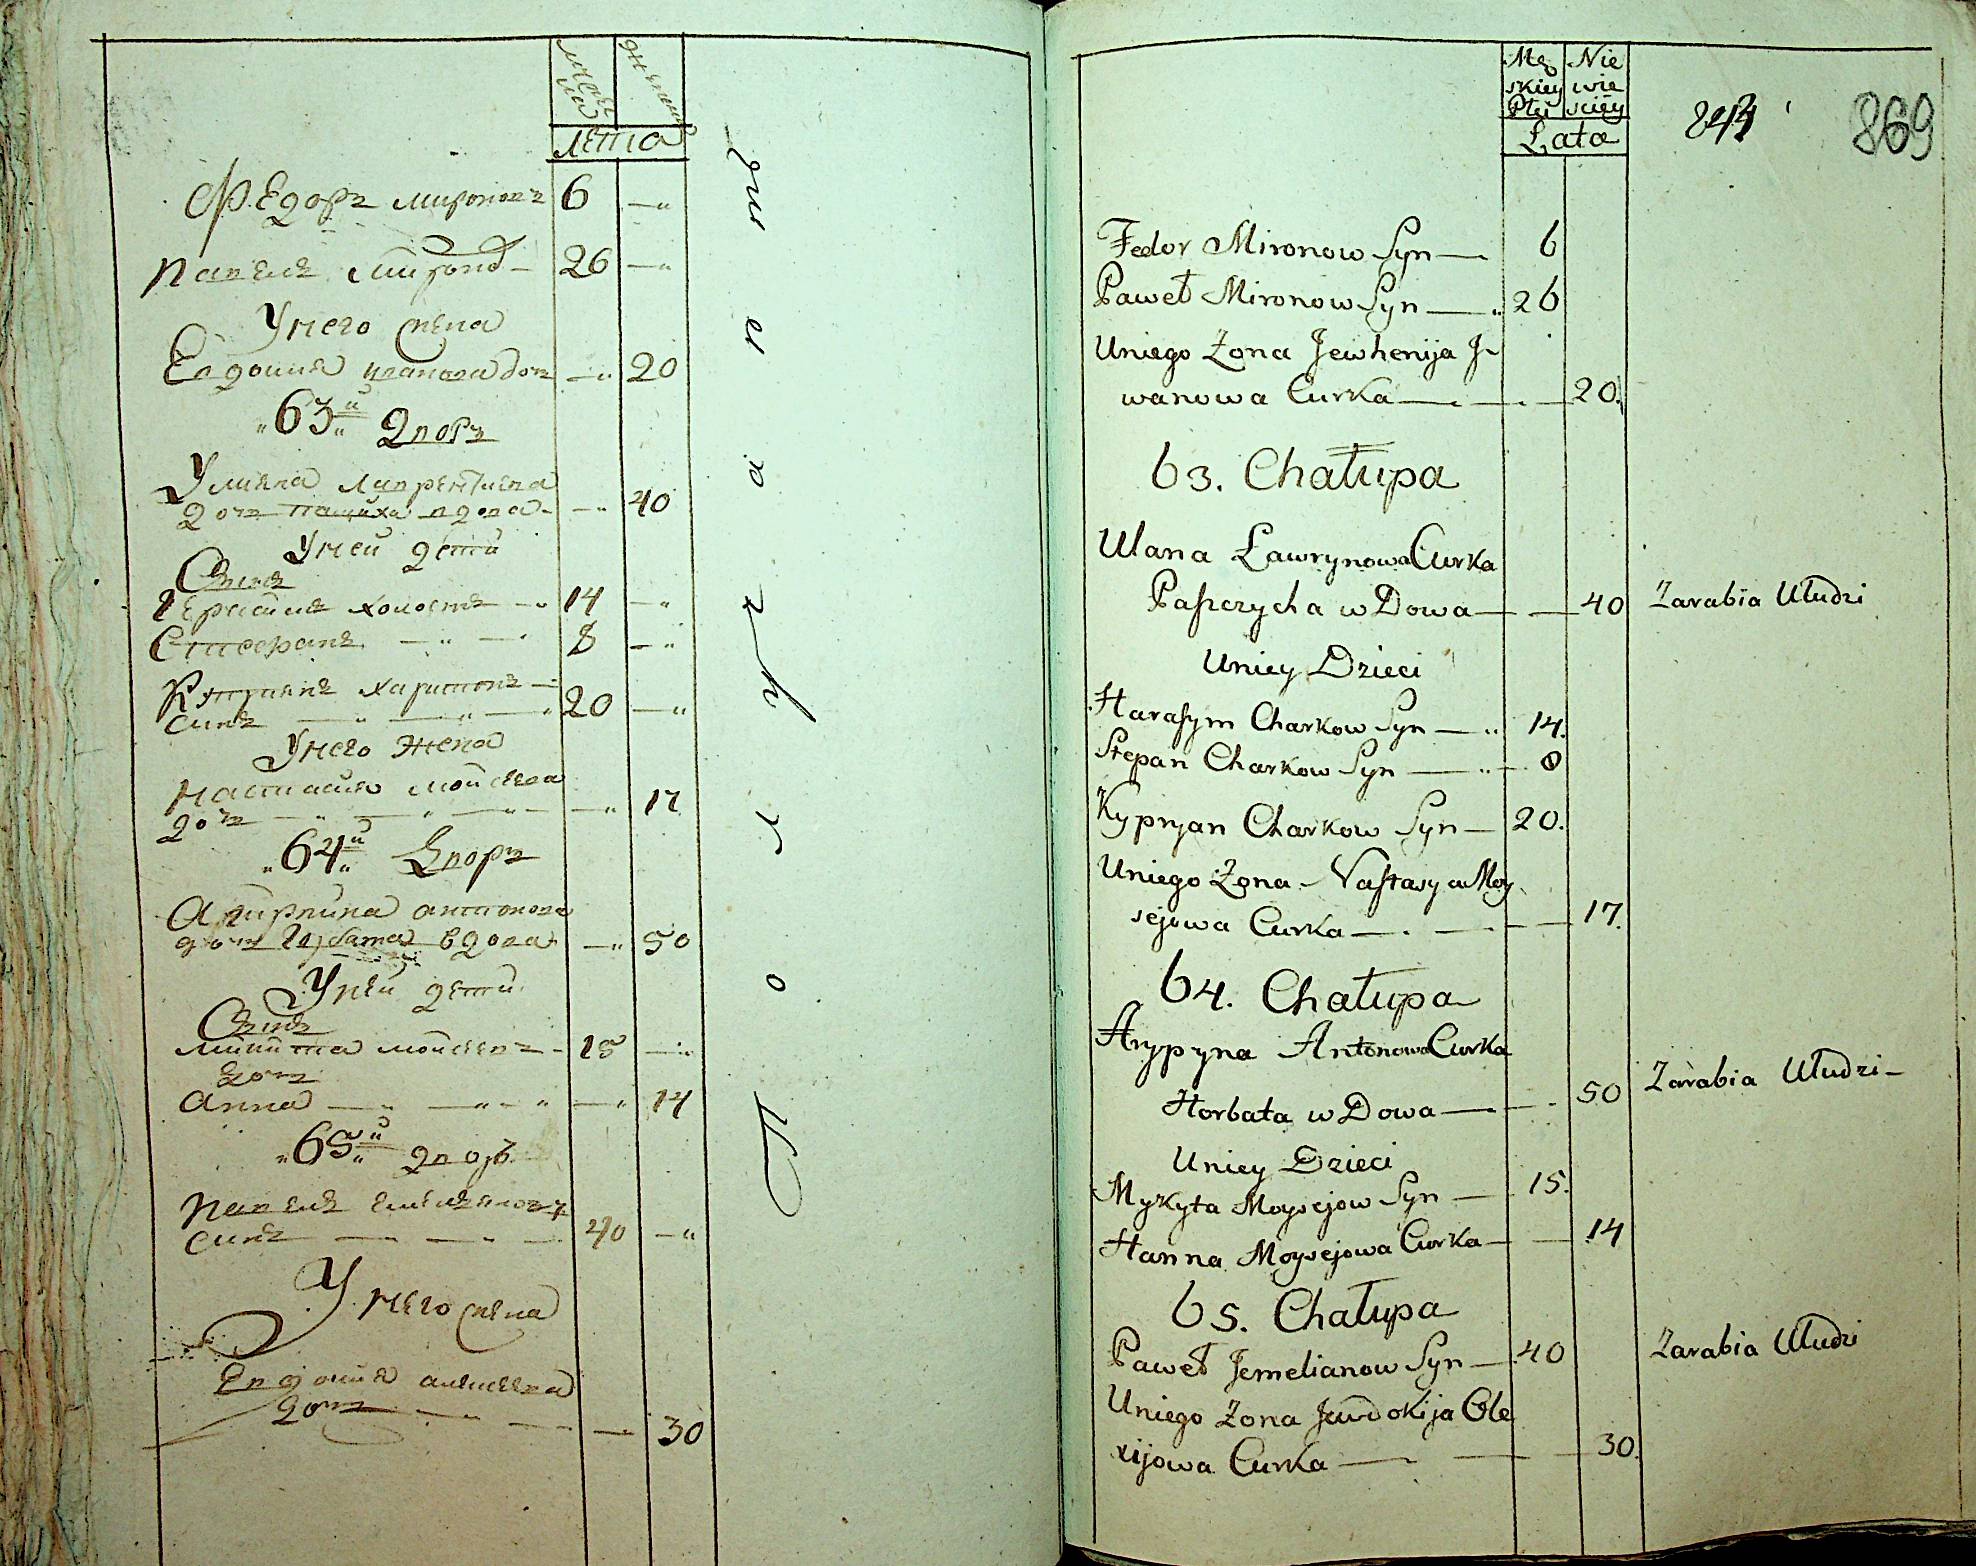 лета
Федоръ мироновъ 6
Павелъ миронов 26
У него жена
Евдокия иванова доч 20
63й Дворъ
Улияна лаврентиева
доч пащиха вдова 40
У ней дети
Синъ
Герасимъ холостъ 14
Стефанъ 8
Киприянъ харитонъ
синъ 20
У него жена
Настасия мойсеева
доч 17
64й Дворъ
Агрипина антонова
доч Горбата вдова 50
У ней дети
Синъ
микита мойсеевъ 15
Доч
Анна 14
65й двор
Павелъ емельяновъ
синъ 40
У него жена
Евдокия алексеева
доч 30
Mę Nie
skiey wie
Płci sciey
Lata
844 869
Fedor Mironow Syn 6
Paweł Mironow Syn 26
Uniego Żona Jewhenija J
wanowa Curka 20.
63. Chałupa
Ulana Ławrynowa Curka
Paszczycha w Dowa 40 Zarabia Uludzi
Uniey Dzieci
Harasym Charkow Syn 14.
Stepan Charkow Syn 8
Kypryan Charkow Syn 20.
Uniego Żona Nastasya Moy
sejowa Curka 17.
64. Chałupa
Arypyna Antonowa Curka
Horbata w Dowa 50 Zarabia Uludzi
Uniey Dzieci
Mykyta Moysejow Syn 15.
Hanna Moysejowa Curka 14
65. Chałupa
Paweł Jemelianow Syn 40 Zarabia Uludzi
Uniego Żona Jawdokija Ole
xijowa Curka 30.